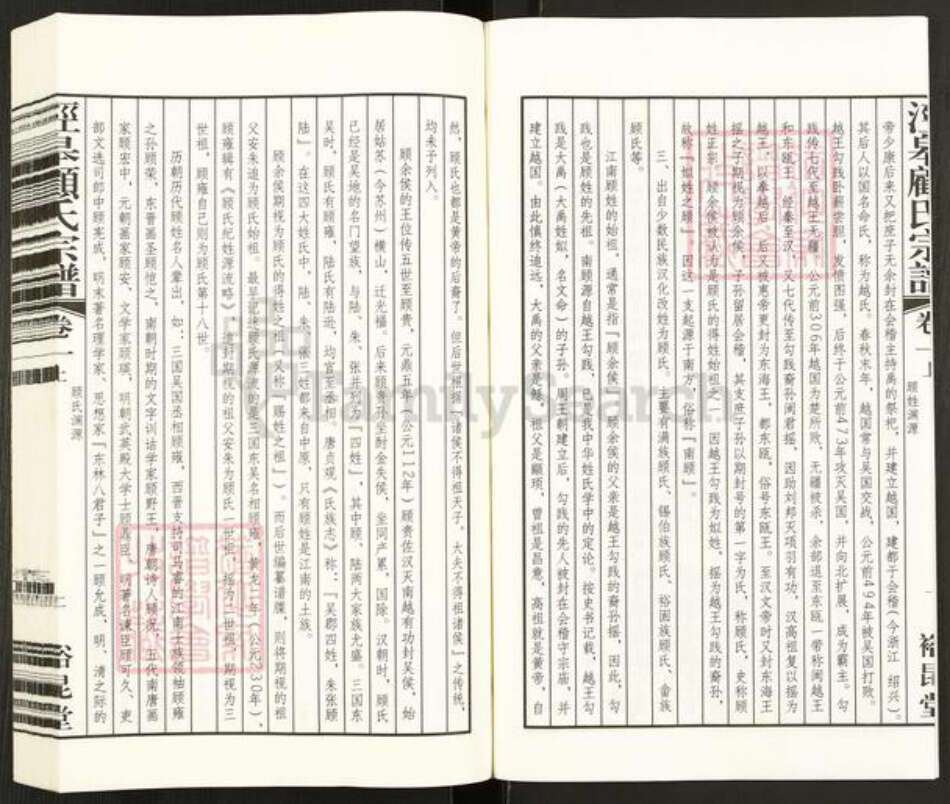 泾皋顾氏宗谱
卷一上
顾姓渊源
裕昆堂
帝少康后来又把庶子无余封在会稽主持禹的祭祀，并建立越国，建都于会稽(今浙江 绍兴)。
其后人以国名命氏，称为越氏。春秋末年，越国常与吴国交战，公元前494年被吴国打败。
越王勾践卧薪尝胆，发愤图强，后终于公元前473年攻灭吴国，并向北扩展，成为霸主。勾
践传七代至越王无疆，公元前306年越国为楚所败，无疆被杀，余部退至东瓯一带称闽越王
和东瓯王。经秦至汉，又七代传至勾践裔孙闽君摇，因助刘邦灭项羽有功，汉高祖复以摇为
越王，以奉越后。后又被惠帝更封为东海王，都东瓯，俗号东瓯王。至汉文帝时又封东海王
摇之子期视为顾余侯，子孙留居会稽，其支庶子孙以期封号的第一字为氏，称顾氏，史称顾
姓正宗。顾余侯被认为是顾氏的得姓始祖之一。因越王勾践为姒姓，摇为越王勾践的裔孙，
故称「姒姓之顾」。因这一支起源于南方，俗称「南顾」。
三、出自少数民族汉化改姓为顾氏。主要有满族顾氏、锡伯族顾氏、裕固族顾氏、畲族
顾氏等。
江南顾姓的始祖，通常是指「顾余侯」。顾余侯的父亲是越王勾践的裔孙摇，因此，勾
践也是顾姓的先祖。南顾源自越王勾践，已成我中华姓氏学中的定论。按史书记载，越王勾
践是大禹(大禹姓姒，名文命)的子孙。周王朝建立后，勾践的先人被封在会稽守宗庙，并
建立越国。由此慎终追远，大禹的父亲是鲧，祖父是颛顼，曾祖是昌意，高祖就是黄帝，自
然，顾氏也都是黄帝的后裔了。但后世根据「诸侯不得祖天子，大夫不得祖诸侯」之传统，
均未予列入。
顾余侯的王位传五世至顾贵，元鼎五年(公元112年)顾贵佐汉灭南越有功封吴侯，始
居姑苏(今苏州)横山，迁光福。后来顾贵孙坐酎金失侯，坐同产累，国除。汉朝时，顾氏
已经是吴地的名门望族，与陆、朱、张并列为「四姓」，其中顾、陆两大家族尤盛。三国东
吴时，顾氏有顾雍，陆氏有陆逊，均官至丞相。唐贞观《氏族志》称：「吴郡四姓，朱张顾
陆」。在这四大姓氏中，陆、朱、张三姓都来自中原，只有顾姓是江南的土族。
顾余侯期视为顾氏的得姓之祖(又称「赐姓之祖」)。而后世编纂谱牒，则将期视的祖
父安朱追为顾氏始祖。最早记述顾氏源流的是三国东吴名相顾雍，黄龙二年(公元230年)，
顾雍辑有《顾氏纪姓源流略》，遣封期视的祖父安朱为顾氏一世祖，摇为二世祖，期视为三
世祖，顾雍自己则为顾氏第十八世。
历朝历代顾姓名人辈出，如：三国吴国丞相顾雍，西晋支持司马睿的江南士族领袖顾雍
之孙顾荣，东晋画圣顾恺之，南朝时期的文字训诂学家顾野王，唐朝诗人顾况，五代南唐画
家顾宏中，元朝画家顾安，文学家顾瑛，明朝武英殿大学士顾鼎臣，明著名谏臣顾可久、吏
部文选司郎中顾宪成，明末著名理学家、思想家「东林八君子」之一顾允成，明、清之际的
泾皋顾氏宗谱
卷一上
顾氏渊源
裕昆堂
FamilySearch